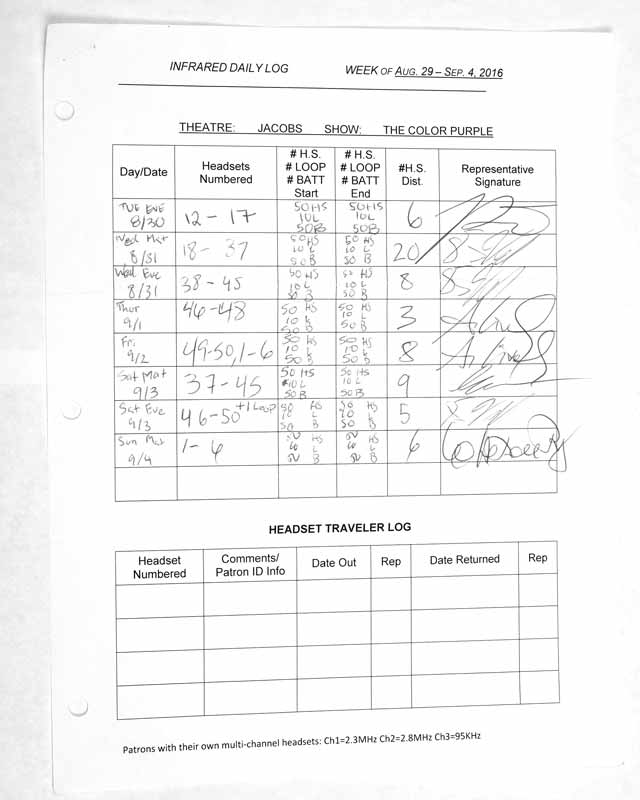 INFRARED DAILY LOG WEEK OF AUG. 29 – SEP. 4, 2016
THEATRE: JACOBS SHOW: THE COLOR PURPLE
Day/Date Headsets Numbered # H.S. # LOOP # BATT Start # H.S. # LOOP # BATT End #H.S. Dist. Representative Signature
Tue Eve 8/30 12 - 17 50 HS 10 L 50 B 50 HS 10 L 50 B 6
Wed Mat 8/31 18 - 37 50 HS 10 L 50 B 50 HS 10 L 50 B 20
Wed Eve 8/31 38 - 45 50 HS 10 L 50 B 50 HS 10 L 50 B 8
Thur 9/1 46 - 48 50 HS 10 L 50 B 50 HS 10 L 50 B 3
Fri 9/2 49-50, 1-6 50 HS 10 L 50 B 50 HS 10 L 50 B 8
Sat Mat 9/3 37 - 45 50 HS 10 L 50 B 50 HS 10 L 50 B 9
Sat Eve 9/3 46 - 50 +1 Loop 50 HS 10 L 50 B 50 HS 10 L 50 B 5
Sun Mat 9/4 1 - 6 50 HS 10 L 50 B 50 HS 10 L 50 B 6
HEADSET TRAVELER LOG
Headset Numbered Comments/ Patron ID Info Date Out Rep Date Returned Rep
Patrons with their own multi-channel headsets: Ch1=2.3MHz Ch2=2.8MHz Ch3=95KHz